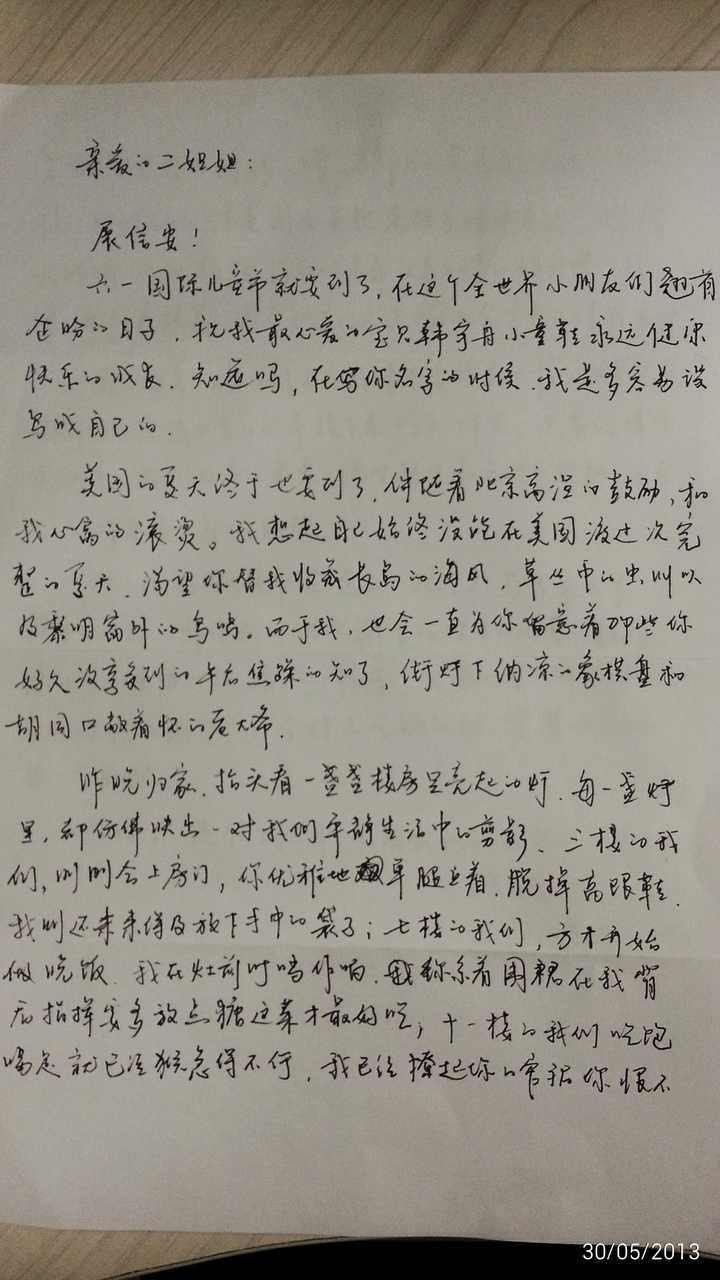 亲爱的二姐姐：
展信安！
六一国际儿童节就要到了，在这个全世界小朋友们翘首
企盼的日子，祝我最心爱的宝贝韩宇舟小童鞋永远健康
快乐的成长．知道吗，在写你名字的时候，我是多容易误
写成自己的．
美国的夏天终于也要到了，伴随着北京高温的鼓励，和
我心窝的滚烫。我想起自己始终没能在美国渡过一次完
整的夏天，渴望你替我收藏长岛的海风，草丛中的虫叫以
及黎明窗外的鸟鸣。而于我，也会一直为你留意着那些你
好久没享受到的午后焦躁的知了，街灯下纳凉的象棋盘和
胡同口敞着怀的老大爷．
昨晚归家，抬头看一盏盏楼房里亮起的灯，每一盏灯
里，都仿佛映出一对我们平静生活中的剪影．三楼的我
们，刚刚合上房门，你优雅地单腿立着，脱掉高跟鞋，
我则还未来得及放下手中的袋子；七楼的我们，方才开始
做晚饭，我在灶前叮当作响，你系着围裙在我背
后指挥要多放点糖这菜才最好吃；十一楼的我们吃饱
喝足就已经猴急得不行，我已经撩起你的裙你恨不
30/05/2013